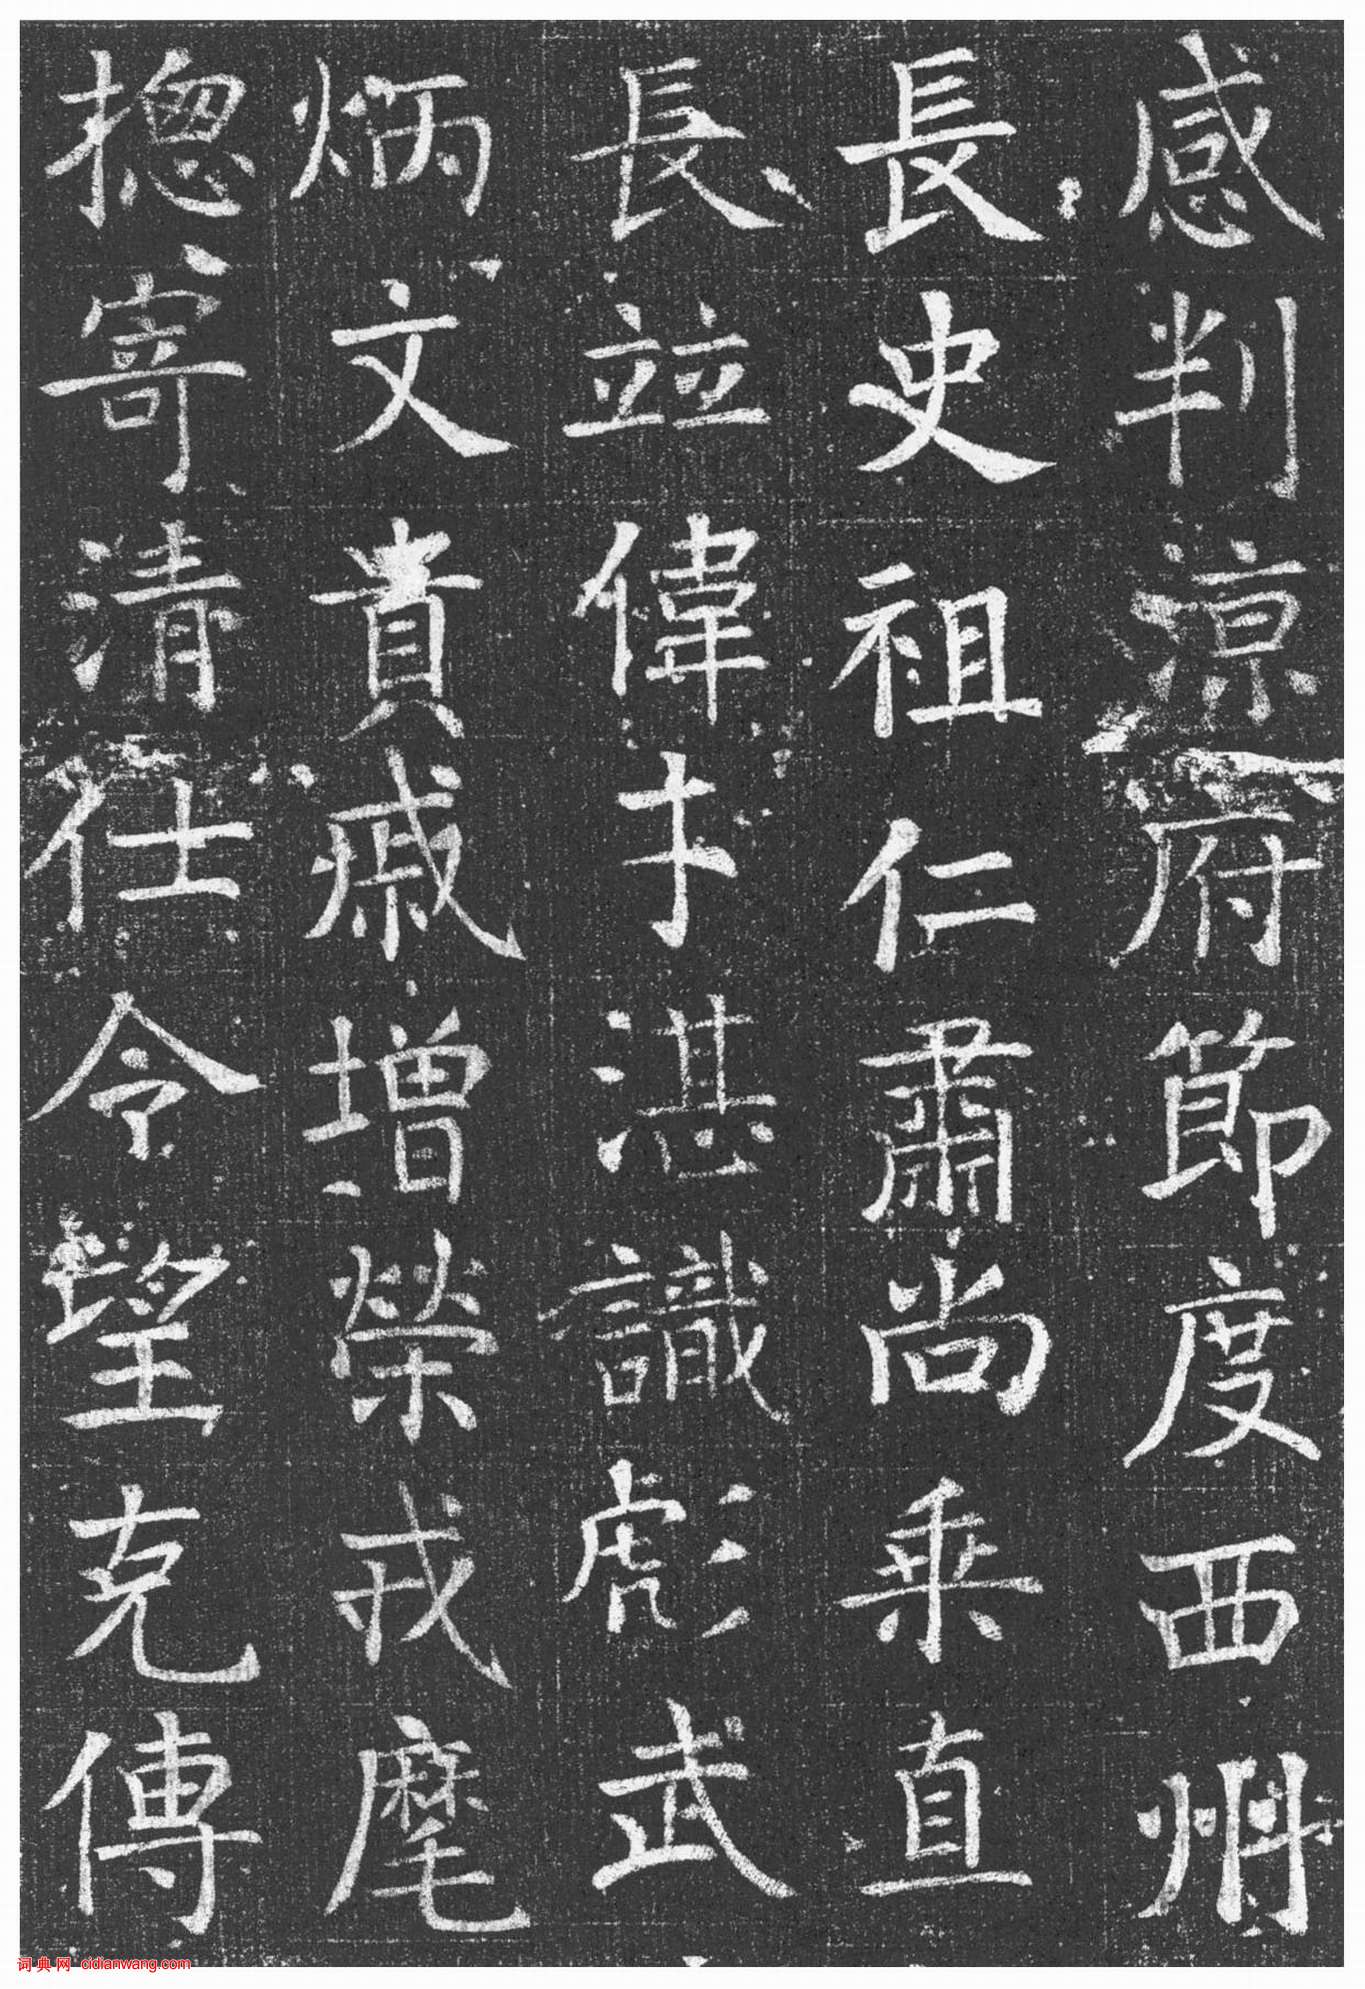 感判涼府節度西州
長史祖仁肅尚乗直
長並偉才湛識彪武
炳文貴戚增榮戎麾
揔寄清任令望克傳
词典网 cidianwang.com